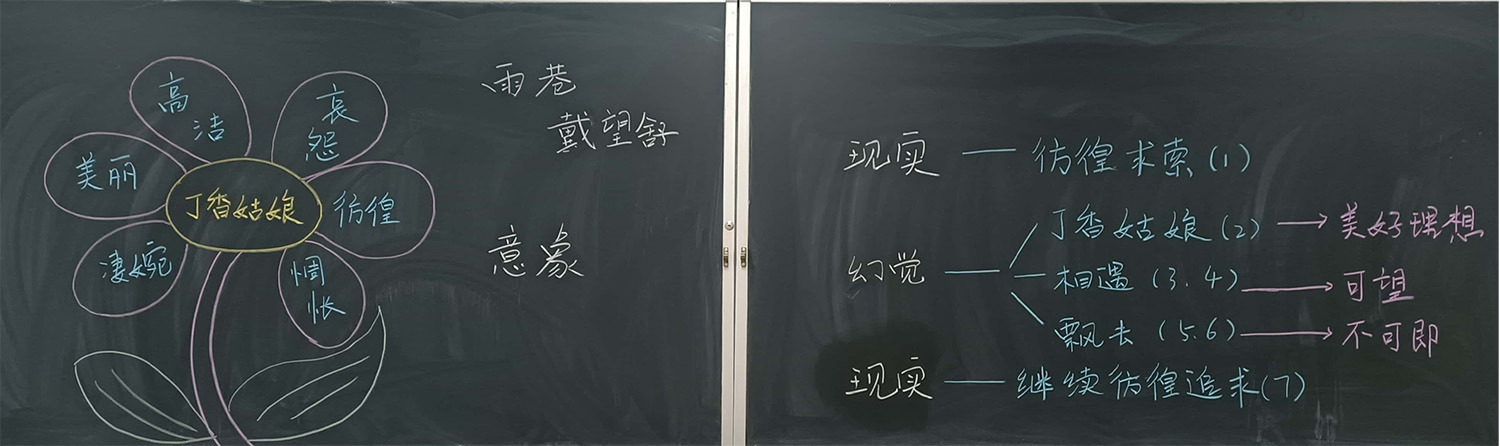 雨巷
戴望舒
意象
高
洁
哀
怨
美丽
丁香姑娘
彷徨
凄婉
惆
怅
现实 — 彷徨求索(1)
丁香姑娘(2) → 美好理想
幻觉 — 相遇(3.4) → 可望
飘去(5.6) → 不可即
现实 — 继续彷徨追求(7)